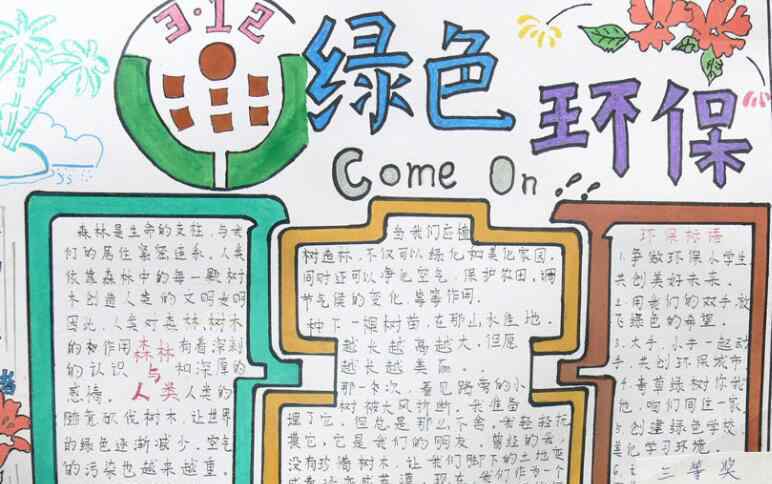 3·12
绿色
环保
Come On
森林是生命的支柱,与我
们的居住紧密连系,人类
依靠森林中的每一颗树
木创造人类的文明发明
因此,人类对森林,树木
的和作用 有着深刻
的认识 和深厚的
感情。 人类的
随意砍伐树木,让世界
的绿色逐渐减少。空气
的污染也越来越重。
森林
与
人类
当我们在植
树造林,不仅可以绿化和美化家园,
同时还可以净化空气,保护农田,调
节气候的变化,等等作用。
种下一棵树苗,在那山水连地。
越长越高越大。但愿
越长越美丽。
那一次,看见路旁的小
树被大风折断。我准备
埋了它。但总是那么不舍,我轻轻抚
摸它,它是我们的朋友,曾经的我,
没有珍惜树木,让我们脚下的土地变
我们作为一个
环保标语
1. 争做环保小学生,
共创美好未来。
2. 用我们的双手,放
飞绿色的希望。
3. 大手,小手一起动
手,共创环保城市
4. 尊尊绿树你我
他,咱们同住一家
5 创建绿色学校,
美化学习环境。
6.
三等奖